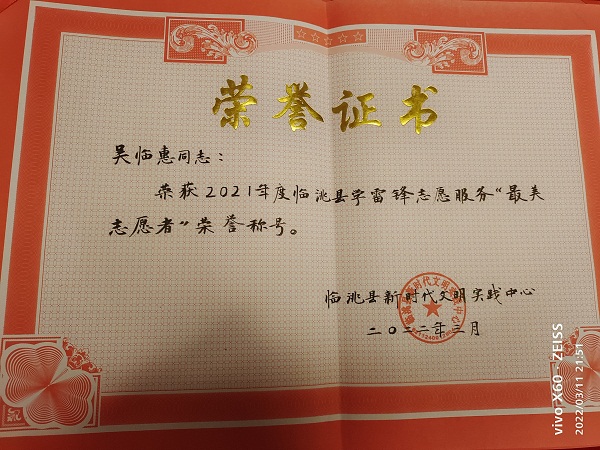 荣誉证书
吴临惠同志：
荣获2021年度临洮县学雷锋志愿服务“最美
志愿者”荣誉称号。
临洮县新时代文明实践中心
二〇二二年三月
vivo X60 · ZEISS
2022/03/11 21:51